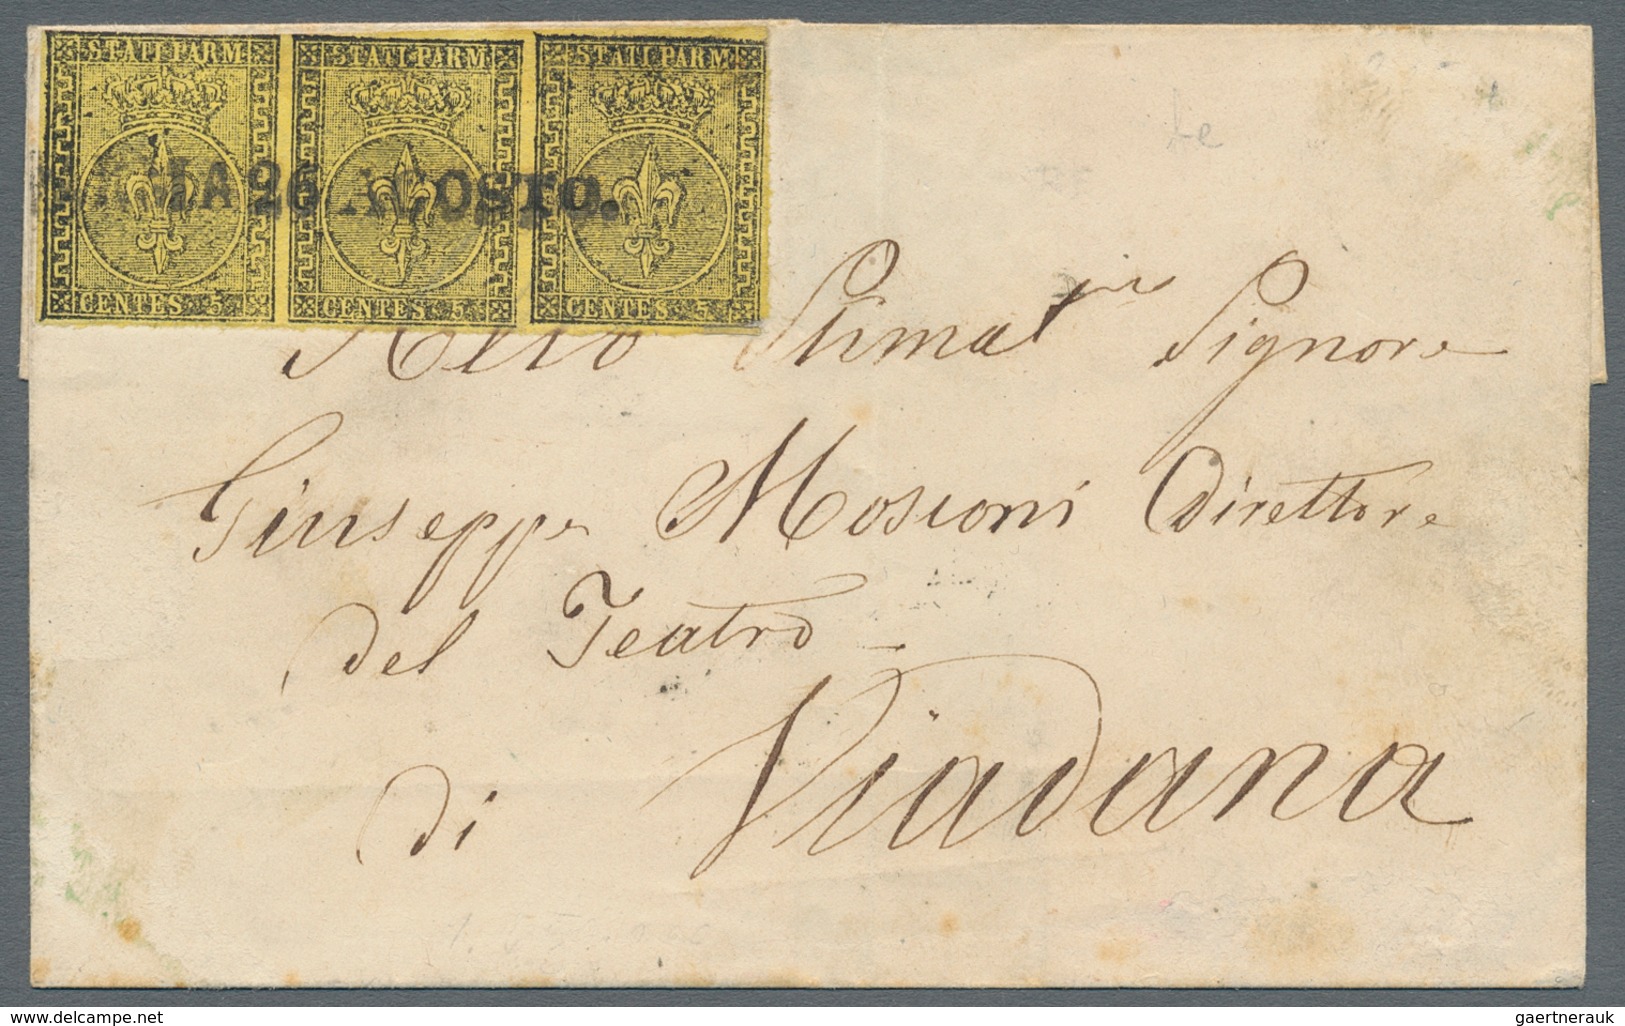 STATI PARM STATI PARM STATI PARM
26 AGOSTO.
CENTES. 5 CENTES. 5 CENTES. 5
Stimat Signore
Giuseppe Mosconi Direttore
del Teatro
di Viadana
www.delcampe.net
gaertnerauk